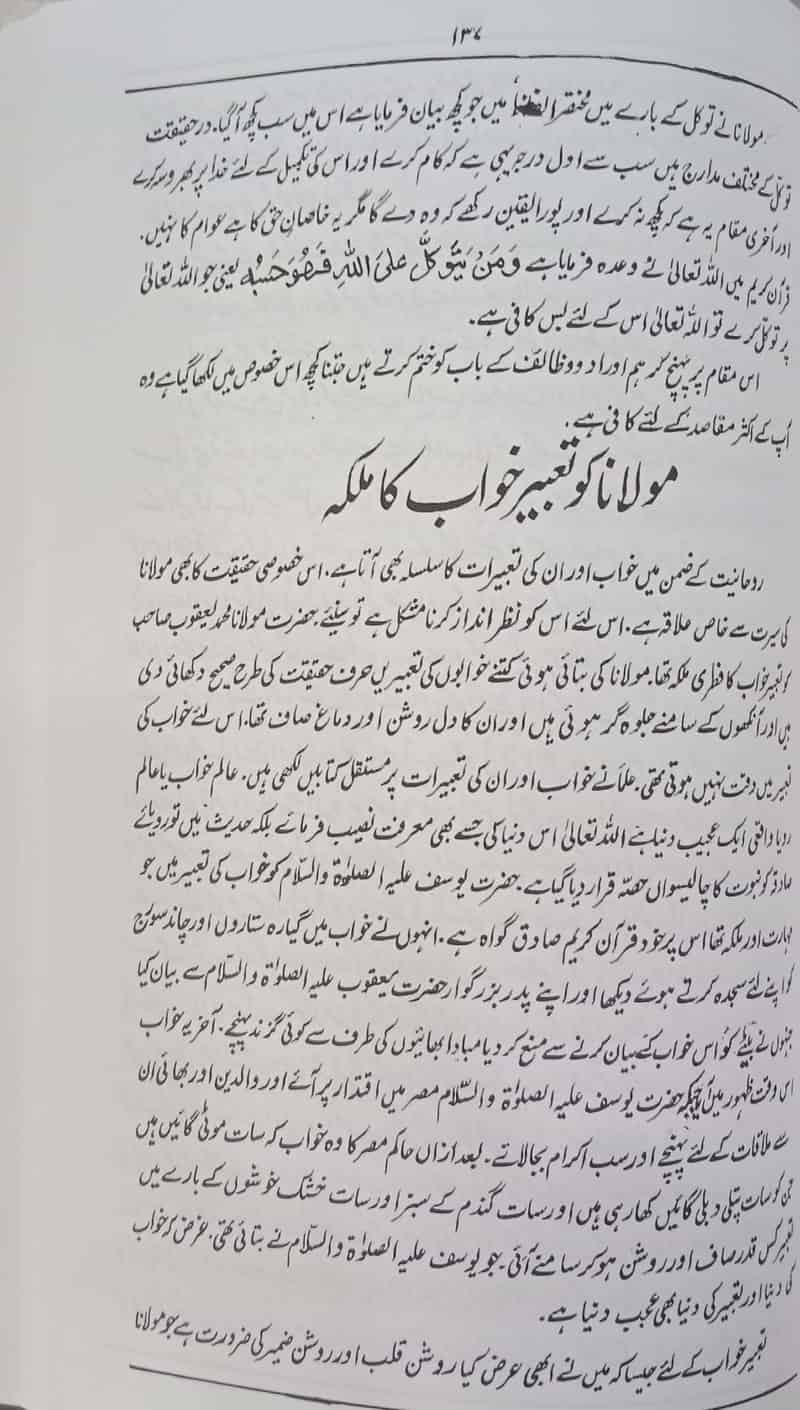 ۱۳۷
مولانا نے توکل کے بارے میں مختصر الفاظ میں جو کچھ بیان فرمایا ہے اس میں سب کچھ آگیا۔ درحقیقت
توکل کے مختلف مدارج ہیں سب سے اول درجہ یہی ہے کہ کام کرے اور اس کی تکمیل کے لئے خدا پر بھروسہ کرے
اور آخری مقام یہ ہے کہ کچھ نہ کرے اور پورا یقین رکھے کہ وہ دے گا مگر یہ خاصانِ حق کا ہے عوام کا نہیں۔
قرآن کریم میں اللہ تعالیٰ نے وعدہ فرمایا ہے وَمَنْ يَتَوَكَّلْ عَلَى اللهِ فَهُوَ حَسْبُهٗ یعنی جو اللہ تعالیٰ
پر توکل کرے تو اللہ تعالیٰ اس کے لئے بس کافی ہے۔
اس مقام پر پہنچ کر ہم اوراد و وظائف کے باب کو ختم کرتے ہیں جتنا کچھ اس خصوص میں لکھا گیا ہے وہ
آپ کے اکثر مقاصد کے لئے کافی ہے۔
مولانا کو تعبیر خواب کا ملکہ
روحانیت کے ضمن میں خواب اور ان کی تعبیرات کا سلسلہ بھی آتا ہے۔ اس خصوصی حقیقت کا بھی مولانا
کی سیرت سے خاص علاقہ ہے۔ اس لئے اس کو نظر انداز کرنا مشکل ہے تو سنیئے۔ حضرت مولانا محمد یعقوب صاحب
کو تعبیر خواب کا فطری ملکہ تھا۔ مولانا کی بتائی ہوئی کتنے خوابوں کی تعبیریں حرف حقیقت کی طرح صحیح دکھائی دی
ہیں اور آنکھوں کے سامنے جلوہ گر ہوئی ہیں اور ان کا دل روشن اور دماغ صاف تھا۔ اس لئے خواب کی
تعبیر میں دقت نہیں ہوتی تھی۔ علمأ نے خواب اور ان کی تعبیرات پر مستقل کتابیں لکھی ہیں۔ عالم خواب یا عالم
رویا واقعی ایک عجیب دنیا ہے اللہ تعالیٰ اس دنیا کی جسے بھی معرفت نصیب فرمائے بلکہ حدیث میں تو رویائے
صادقہ کو نبوت کا چالیسواں حصّہ قرار دیا گیا ہے۔ حضرت یوسف علیہ الصلوٰۃ والسّلام کو خواب کی تعبیر میں جو
مہارت اور ملکہ تھا اس پر خود قرآن کریم صادق گواہ ہے۔ انہوں نے خواب میں گیارہ ستاروں اور چاند سورج
کو اپنے لئے سجدہ کرتے ہوئے دیکھا اور اپنے پدر بزرگوار حضرت یعقوب علیہ الصلوٰۃ والسّلام سے بیان کیا
جنہوں نے بیٹے کو اس خواب کے بیان کرنے سے منع کر دیا مبادا بھائیوں کی طرف سے کوئی گزند پہنچے۔ آخر یہ خواب
اس وقت ظہور میں آیا جبکہ حضرت یوسف علیہ الصلوٰۃ والسّلام مصر میں اقتدار پر آئے اور والدین اور بھائی ان
سے ملاقات کے لئے پہنچے اور سب اکرام بجا لائے۔ بعد ازاں حاکم مصر کا وہ خواب کہ سات موٹی گائیں ہیں
جن کو سات پتلی دبلی گائیں کھا رہی ہیں اور سات گندم کے سبز اور سات خشک خوشوں کے بارے میں
تعبیر کس قدر صاف اور روشن ہو کر سامنے آئی۔ جو یوسف علیہ الصلوٰۃ والسلام نے بتائی تھی۔ غرض کہ خواب
کی دنیا اور تعبیر کی دنیا بھی عجیب دنیا ہے۔
تعبیر خواب کے لئے جیسا کہ میں نے ابھی عرض کیا روشن قلب اور روشن ضمیر کی ضرورت ہے جو مولانا